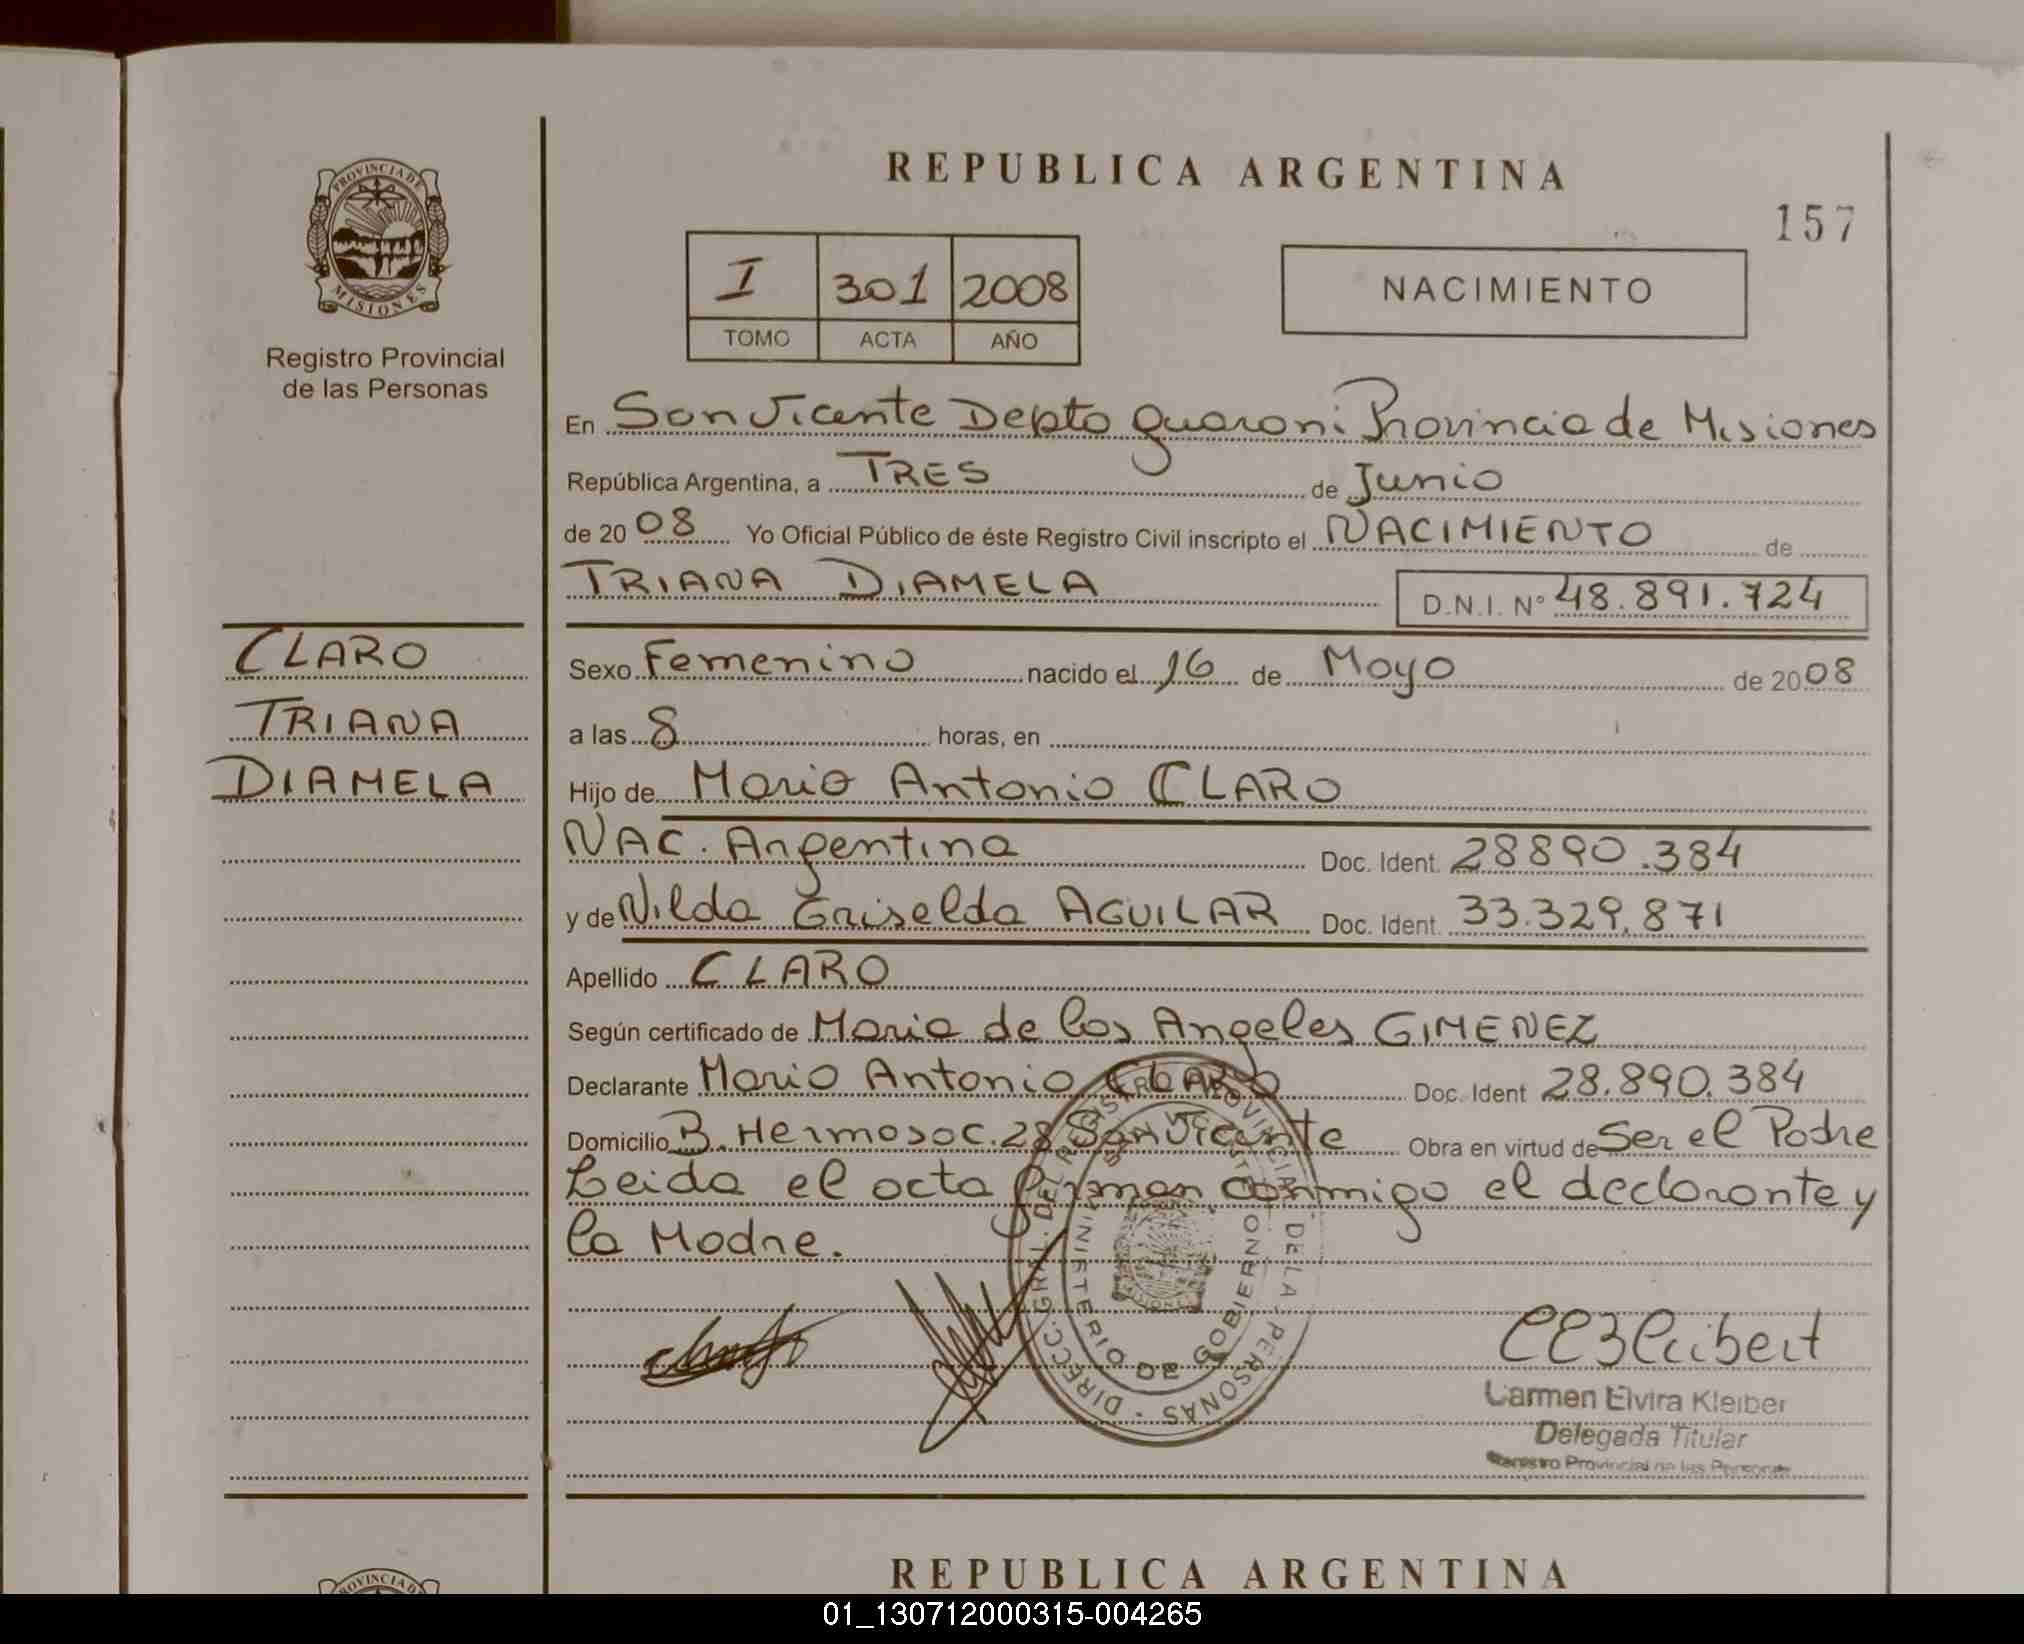 REPUBLICA ARGENTINA
157
PROVINCIA DE
MISIONES
Registro Provincial
de las Personas
I 301 2008
TOMO ACTA AÑO
NACIMIENTO
En San Vicente Depto Guarani Provincia de Misiones
República Argentina, a TRES de Junio
de 2008 Yo Oficial Público de éste Registro Civil inscripto el NACIMIENTO de
TRIANA DIAMELA D.N.I. N° 48.891.724
CLARO
TRIANA
DIAMELA
Sexo Femenino nacido el 16 de Mayo de 2008
a las 8 horas, en
Hijo de Mario Antonio CLARO
NAC. Argentina Doc. Ident. 28890.384
y de Nilda Griselda AGUILAR Doc. Ident. 33.329.871
Apellido CLARO
Según certificado de Maria de los Angeles GIMENEZ
Declarante Mario Antonio CLARO Doc. Ident 28.890.384
Domicilio B. Hermoso C. 28 San Vicente Obra en virtud de Ser el Padre
Leida el acta firman conmigo el declarante y
la Madre.
DIRECC. GRAL. DEL REGISTRO PROVINCIAL DE LA PERSONAS
MINISTERIO DE GOBIERNO
Carmen Elvira Kleiber
Delegada Titular
Registro Provincial de las Personas
REPUBLICA ARGENTINA
PROVINCIA DE
01_130712000315-004265